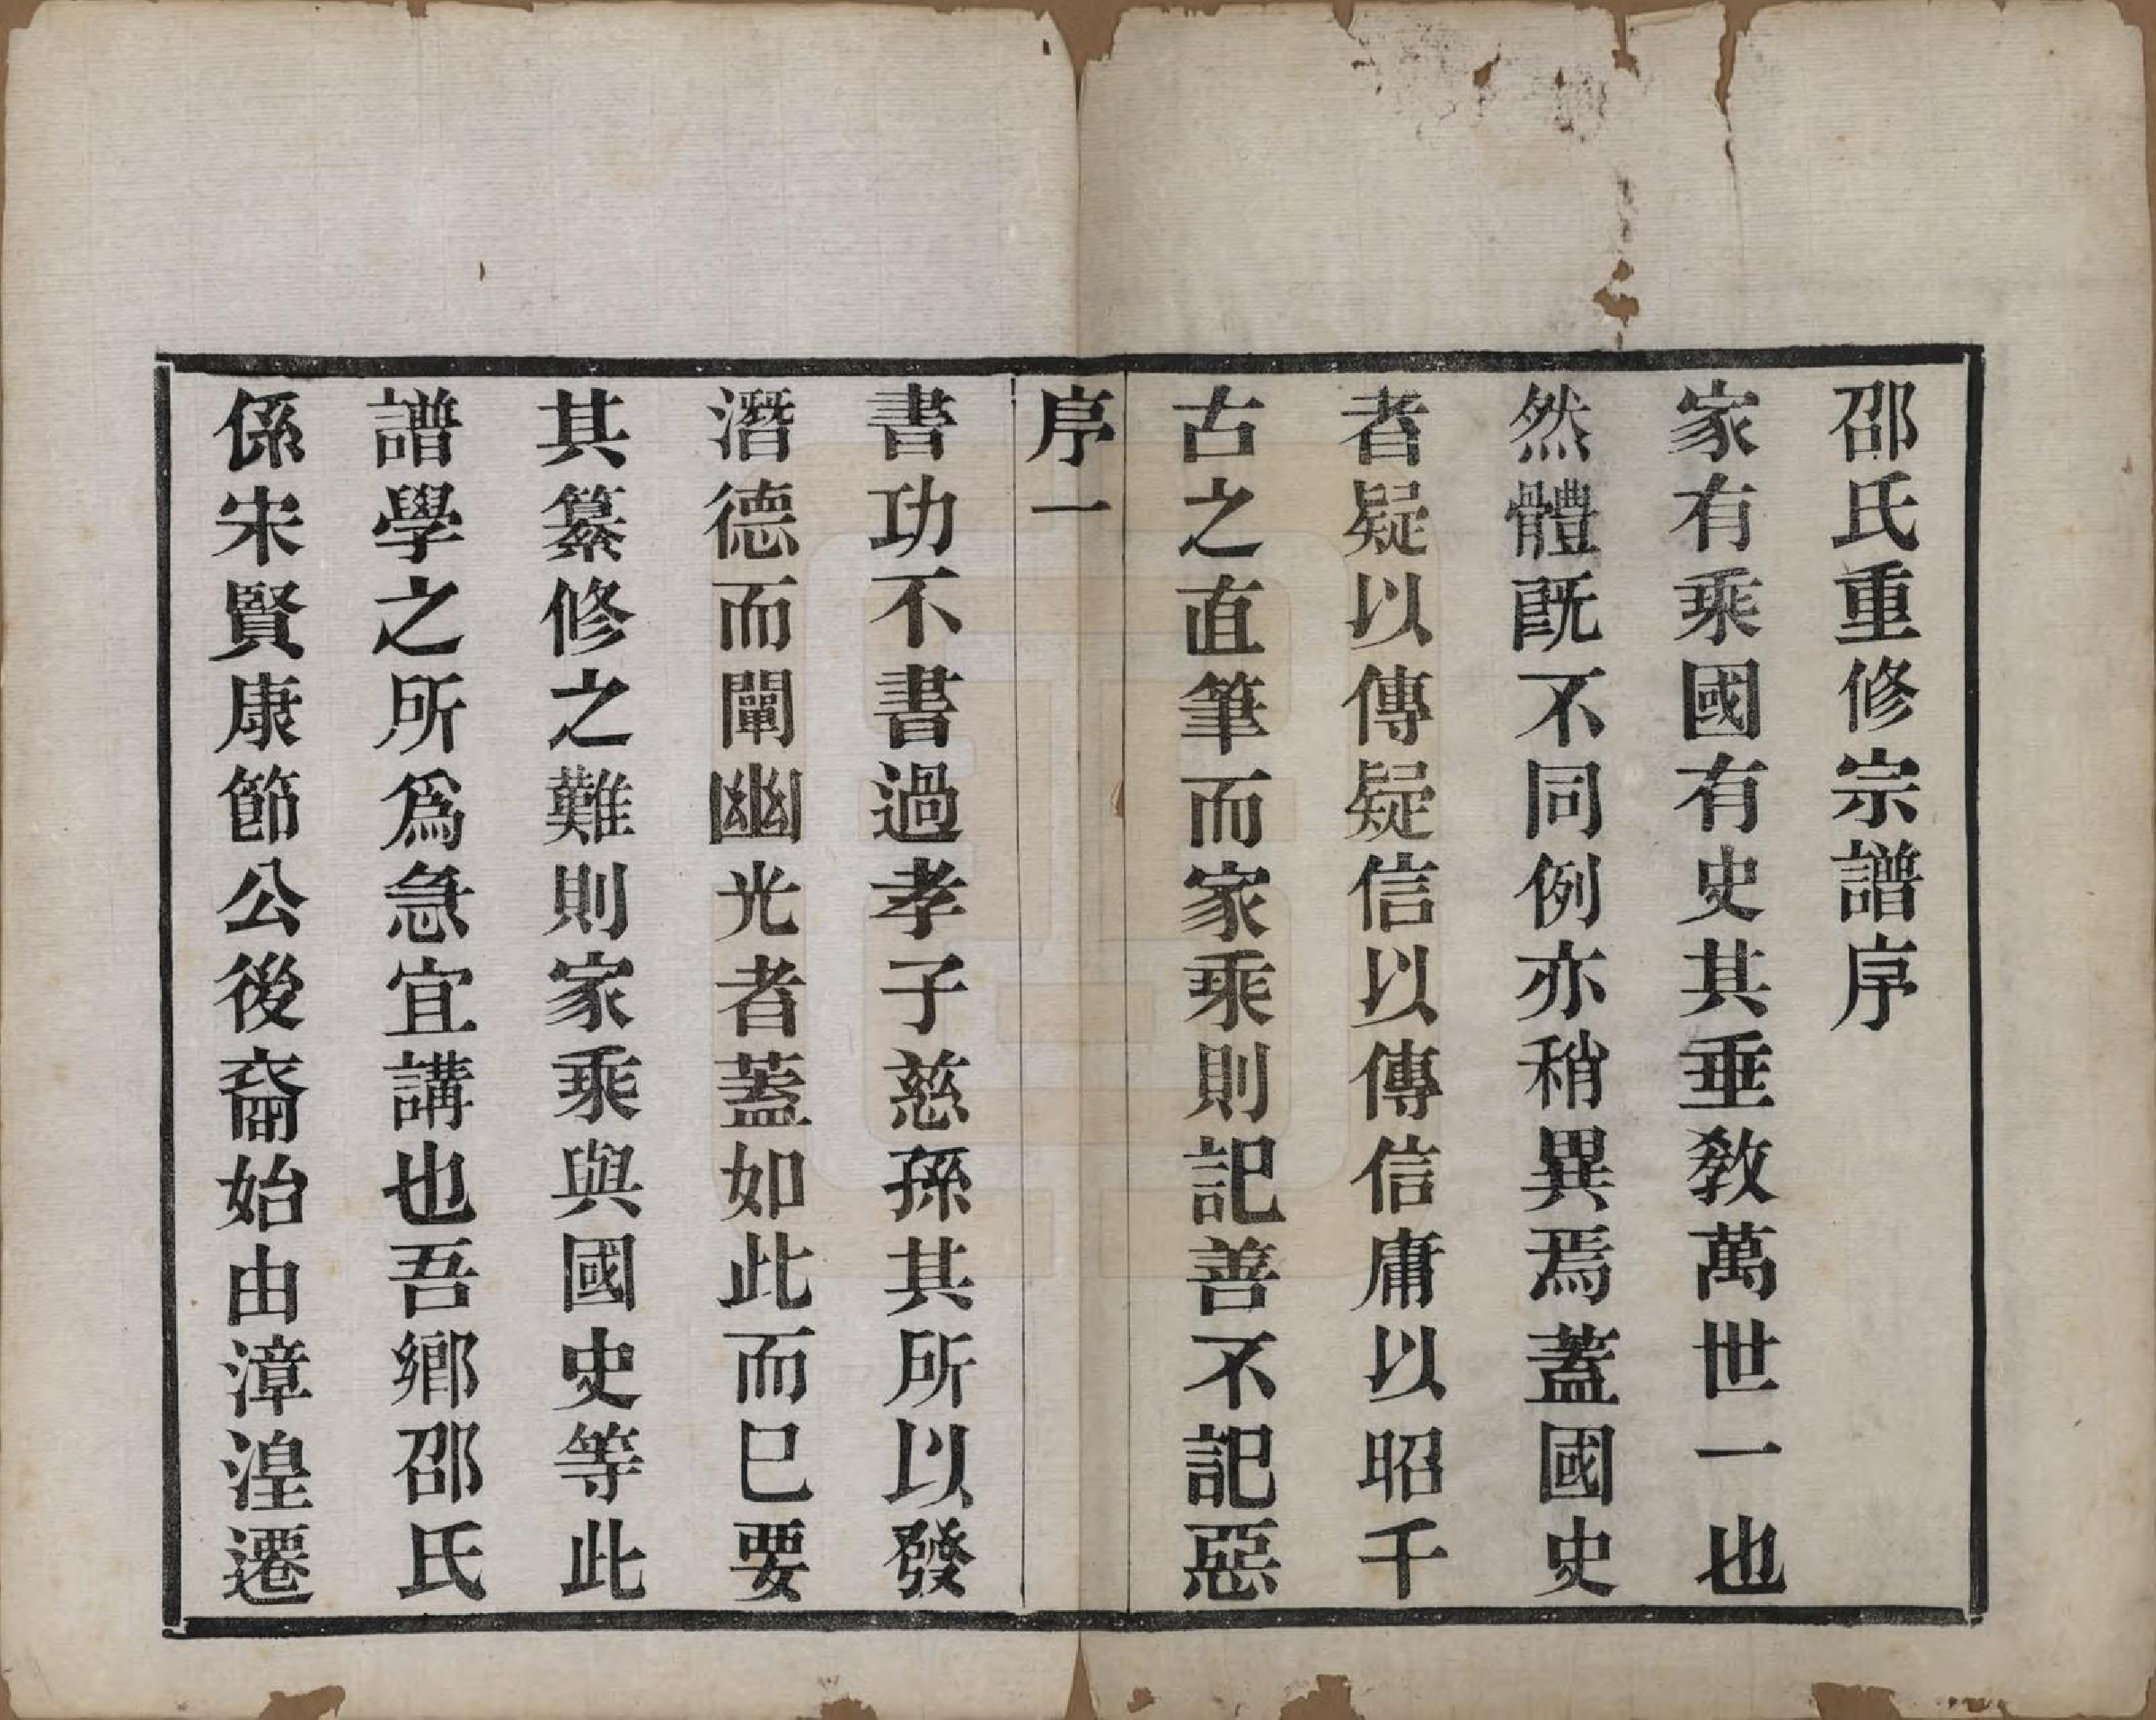 邵氏重修宗譜序
家有乘國有史其垂教萬世一也
然體既不同例亦稍異焉蓋國史
者疑以傳疑信以傳信庸以昭千
古之直筆而家乘則記善不記惡
序一
書功不書過孝子慈孫其所以發
潛德而闡幽光者蓋如此而已要
其纂修之難則家乘與國史等此
譜學之所為急宜講也吾鄉邵氏
係宋賢康節公後裔始由漳湟遷